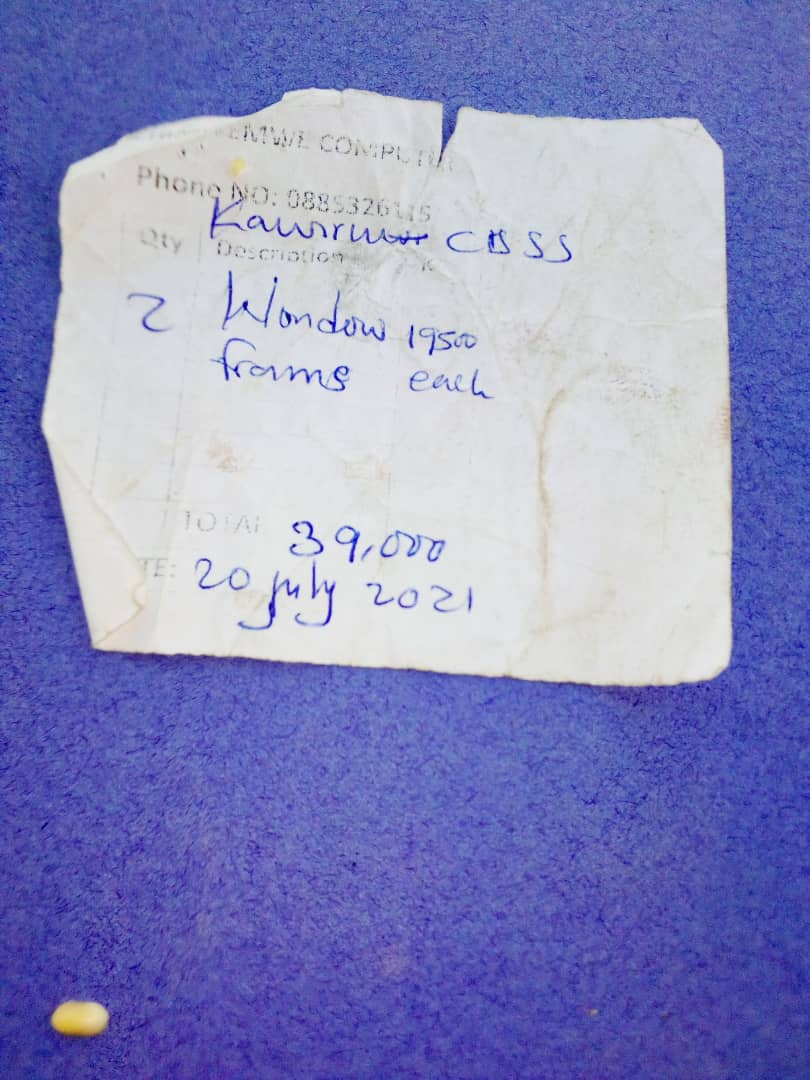 COMPUTER
Phone NO: 0885326115
CBSS
Qty Description K
2 Wondow 19500
frams each
TOTAL 39,000
TE: 20 july 2021